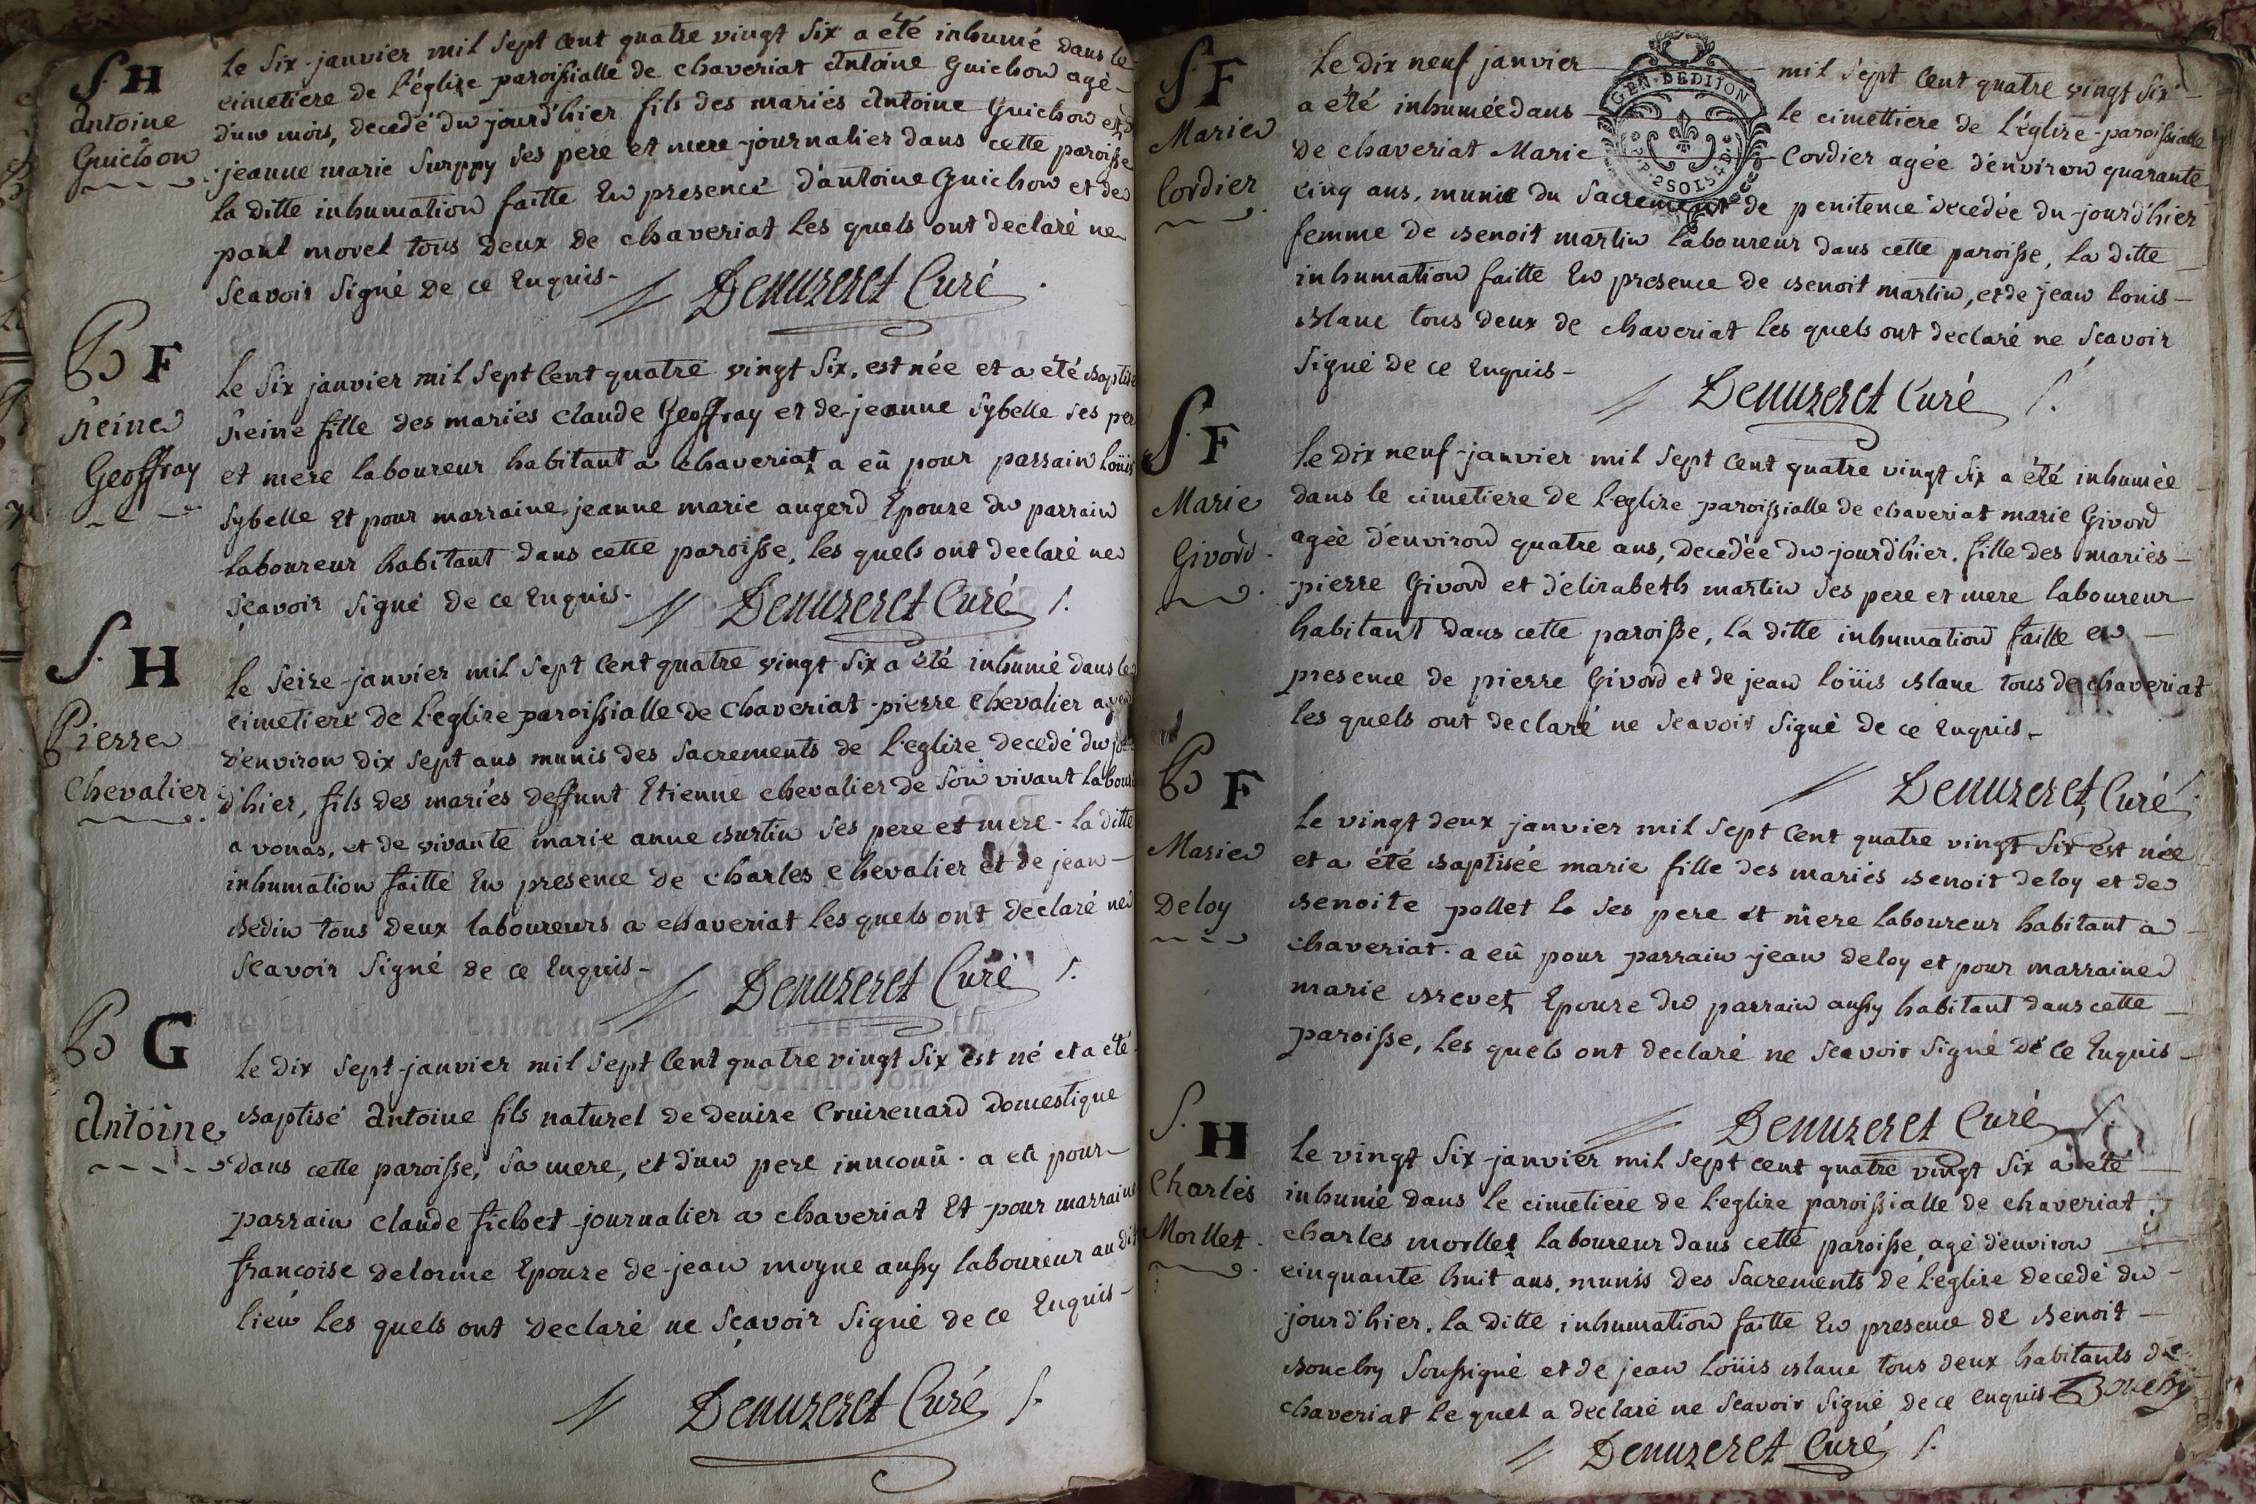 S. H
Antoine
Guichon
Le Six janvier mil Sept Cent quatre vingt Six a été inhumé dans le
cimetiere de l'églize paroissialle de chaveriat Antoine Guichon agé
d'un mois, decedé du jourd'hier fils des mariés Antoine Guichon et de
jeanne marie Surppy ses pere et mere journalier dans cette paroisse
la ditte inhumation faitte En presence d'antoine Guichon et de
paul morel tous deux de chaveriat les quels ont declaré ne
Scavoir Signé de ce Enquis-
Denuzeret Curé
B F
Reine
Geoffray
Le Six janvier mil Sept Cent quatre vingt Six, est née et a été Baptisé
Reine fille des mariés claude Geoffray et de jeanne Sybelle ses per
et mere laboureur habitant a chaveriat a eû pour parrain Loüis
Sybelle Et pour marraine jeanne marie augerd Epouze du parrain
laboureur habitant dans cette paroisse, les quels ont declaré ne
Sçavoir Signé de ce Enquis-
Denuzeret Curé
S. H
Pierre
Chevalier
Le Seize janvier mil Sept Cent quatre vingt Six a été inhumé dans le
cimetiere de l'eglize paroissialle de Chaveriat pierre Chevalier agé
d'environ dix Sept ans munis des Sacrements de l'eglize decedé du jour
d'hier, fils des mariés deffunt Etienne chevalier de Son vivant labour
a vonas, et de vivante marie anne Burtin Ses pere et mere- la ditte
inhumation faitte En presence de charles chevalier et de jean
Bedin tous deux laboureurs a chaveriat les quels ont declaré ne
Scavoir Signé de ce Enquis-
Denuzeret Curé
B G
Antoine
Le dix Sept janvier mil Sept Cent quatre vingt Six est né et a été
Baptisé Antoine fils naturel de denize Cruizenard domestique
dans cette paroisse, Sa mere, et d'un pere innconû. a eû pour
parrain claude fichet journalier a chaveriat Et pour marraine
françoise delorme Epouze de jean moyne aussy laboureur au dit
lieu les quels ont declaré ne Sçavoir Signé de ce Enquis-
Denuzeret Curé
S. F
Marie
Cordier
GEN. DE DIJON
2 SOLS 4 D
Le dix neuf janvier mil Sept Cent quatre vingt Six
a été inhumée dans le cimettiere de l'églize paroissialle
de chaveriat Marie Cordier agée d'environ quarante
cinq ans, munie du Sacrement de penitence decedée du jourd'hier
femme de Benoit martin laboureur dans cette paroisse, la ditte
inhumation faitte En presence de Benoit martin, et de jean louis
Blanc tous deux de chaveriat les quels ont declaré ne Scavoir
Signé de ce Enquis-
Denuzeret Curé
S. F
Marie
Givord
Le dix neuf janvier mil Sept Cent quatre vingt Six a été inhumée
dans le cimetiere de l'eglize paroissialle de chaveriat marie Givord
agée d'environ quatre ans, decedée du jourd'hier. fille des mariés
pierre Givord et d'elizabeth martin Ses pere et mere laboureur
habitant dans cette paroisse, la ditte inhumation faitte en
presence de pierre Givord et de jean loüis Blanc tous de chaveriat
les quels ont declaré ne Scavoir Signé de ce Enquis-
Denuzeret, Curé
B F
Marie
Deloy
Le vingt deux janvier mil Sept Cent quatre vingt Six est née
et a été Baptisée marie fille des mariés Benoit deloy et de
Benoite pollet Ses pere et mere laboureur habitant a
chaveriat. a eû pour parrain jean deloy et pour marraine
marie Brevet Epouze du parrain aussy habitant dans cette
paroisse, Les quels ont declaré ne Scavoir Signé de ce Enquis
Denuzeret Curé
S. H
Charles
Morllet
Le vingt Six janvier mil Sept cent quatre vingt Six a été
inhumé dans le cimetiere de l'eglize paroissialle de chaveriat
charles morllet laboureur dans cette paroisse, agé d'environ
cinquante huit ans. munis des Sacrements de l'eglize decedé du
jourd'hier. la ditte inhumation faitte En presence de Benoit
Bouchy Soussigné et de jean Loüis Blanc tous deux habitants de
chaveriat le quel a declaré ne Scavoir Signé de ce enquis Bouchy
Denuzeret Curé